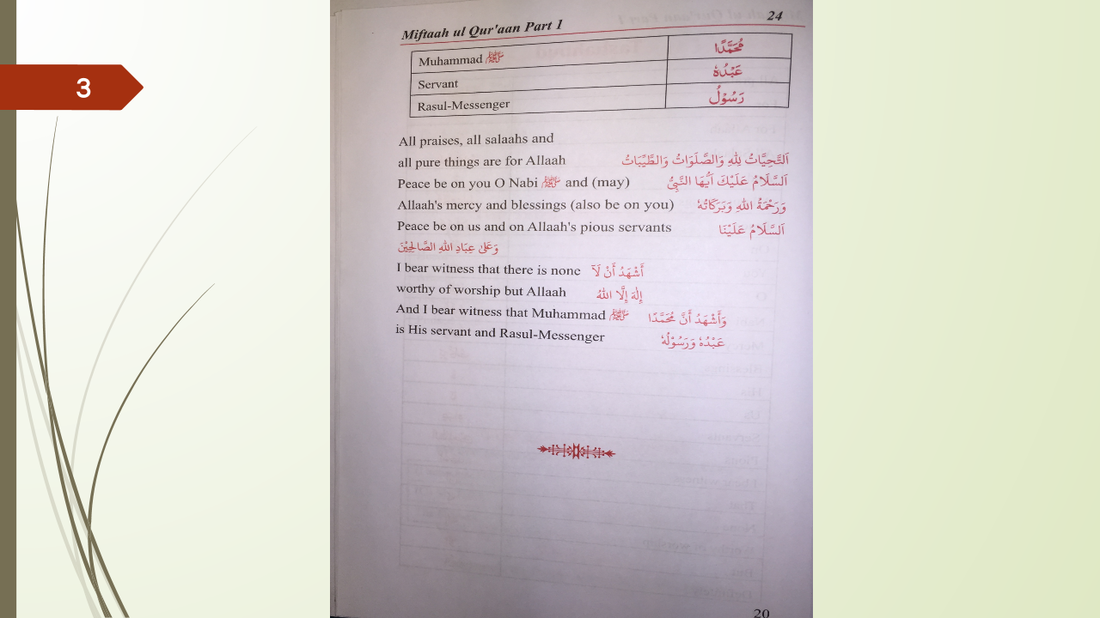 3
Miftaah ul Qur'aan Part 1 24
Muhammad ﷺ مُحَمَّدًا
Servant عَبْدُهٗ
Rasul-Messenger رَسُوْلُ
All praises, all salaahs and
all pure things are for Allaah اَلتَّحِيَّاتُ لِلّٰهِ وَالصَّلَوَاتُ وَالطَّيِّبَاتُ
Peace be on you O Nabi ﷺ and (may) اَلسَّلَامُ عَلَيْكَ اَيُّهَا النَّبِيُّ
Allaah's mercy and blessings (also be on you) وَرَحْمَةُ اللّٰهِ وَبَرَكَاتُهٗ
Peace be on us and on Allaah's pious servants اَلسَّلَامُ عَلَيْنَا
وَعَلىٰ عِبَادِ اللّٰهِ الصَّالِحِيْنَ
I bear witness that there is none أَشْهَدُ أَنْ لَآ
worthy of worship but Allaah إِلٰهَ إِلَّا اللّٰهُ
And I bear witness that Muhammad ﷺ وَأَشْهَدُ أَنَّ مُحَمَّدًا
is His servant and Rasul-Messenger عَبْدُهٗ وَرَسُوْلُهٗ
20